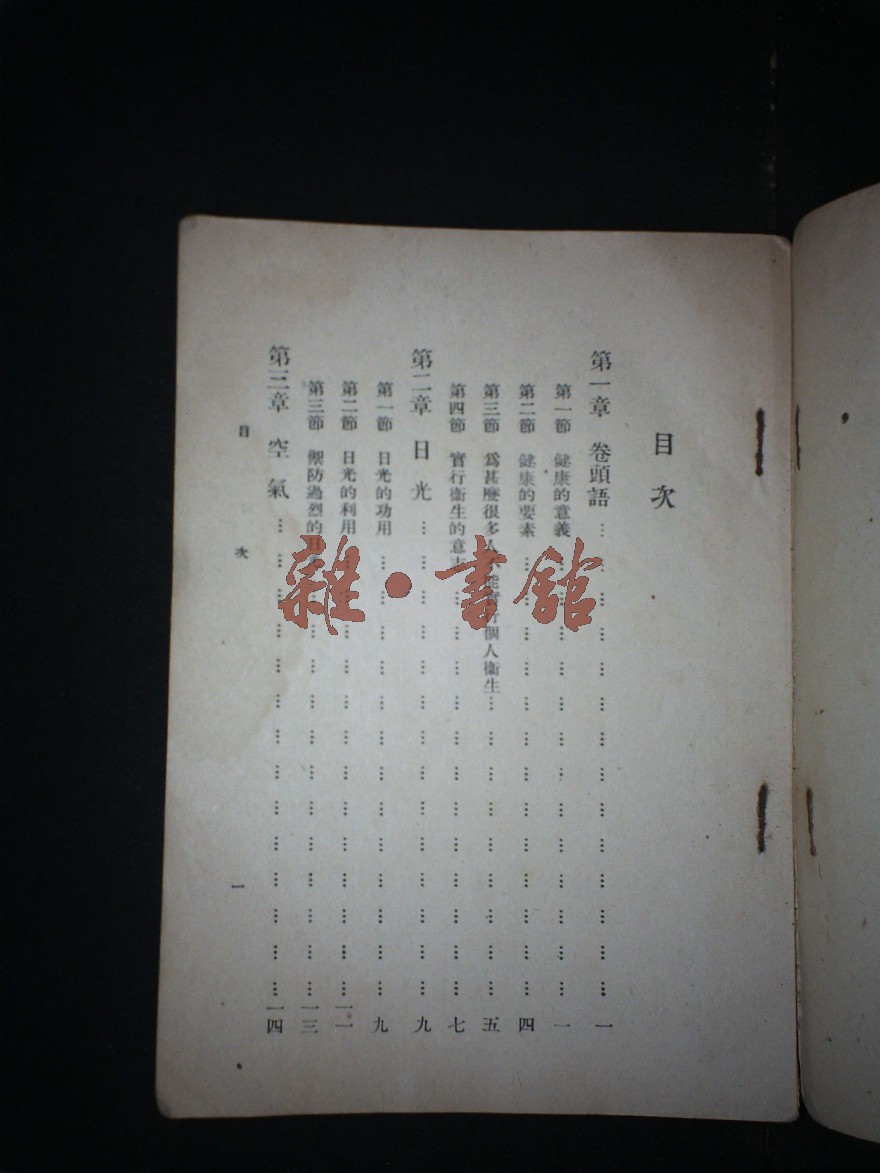 目次
第一章 卷頭語……一
第一節 健康的意義……一
第二節 健康的要素……四
第三節 爲甚麼很多人不能實行個人衞生……五
第四節 實行衞生的意志……七
第二章 日光……九
第一節 日光的功用……九
第二節 日光的利用……一一
第三節 禦防過烈的日光……一三
第三章 空氣……一四
目次 一
雜·書館